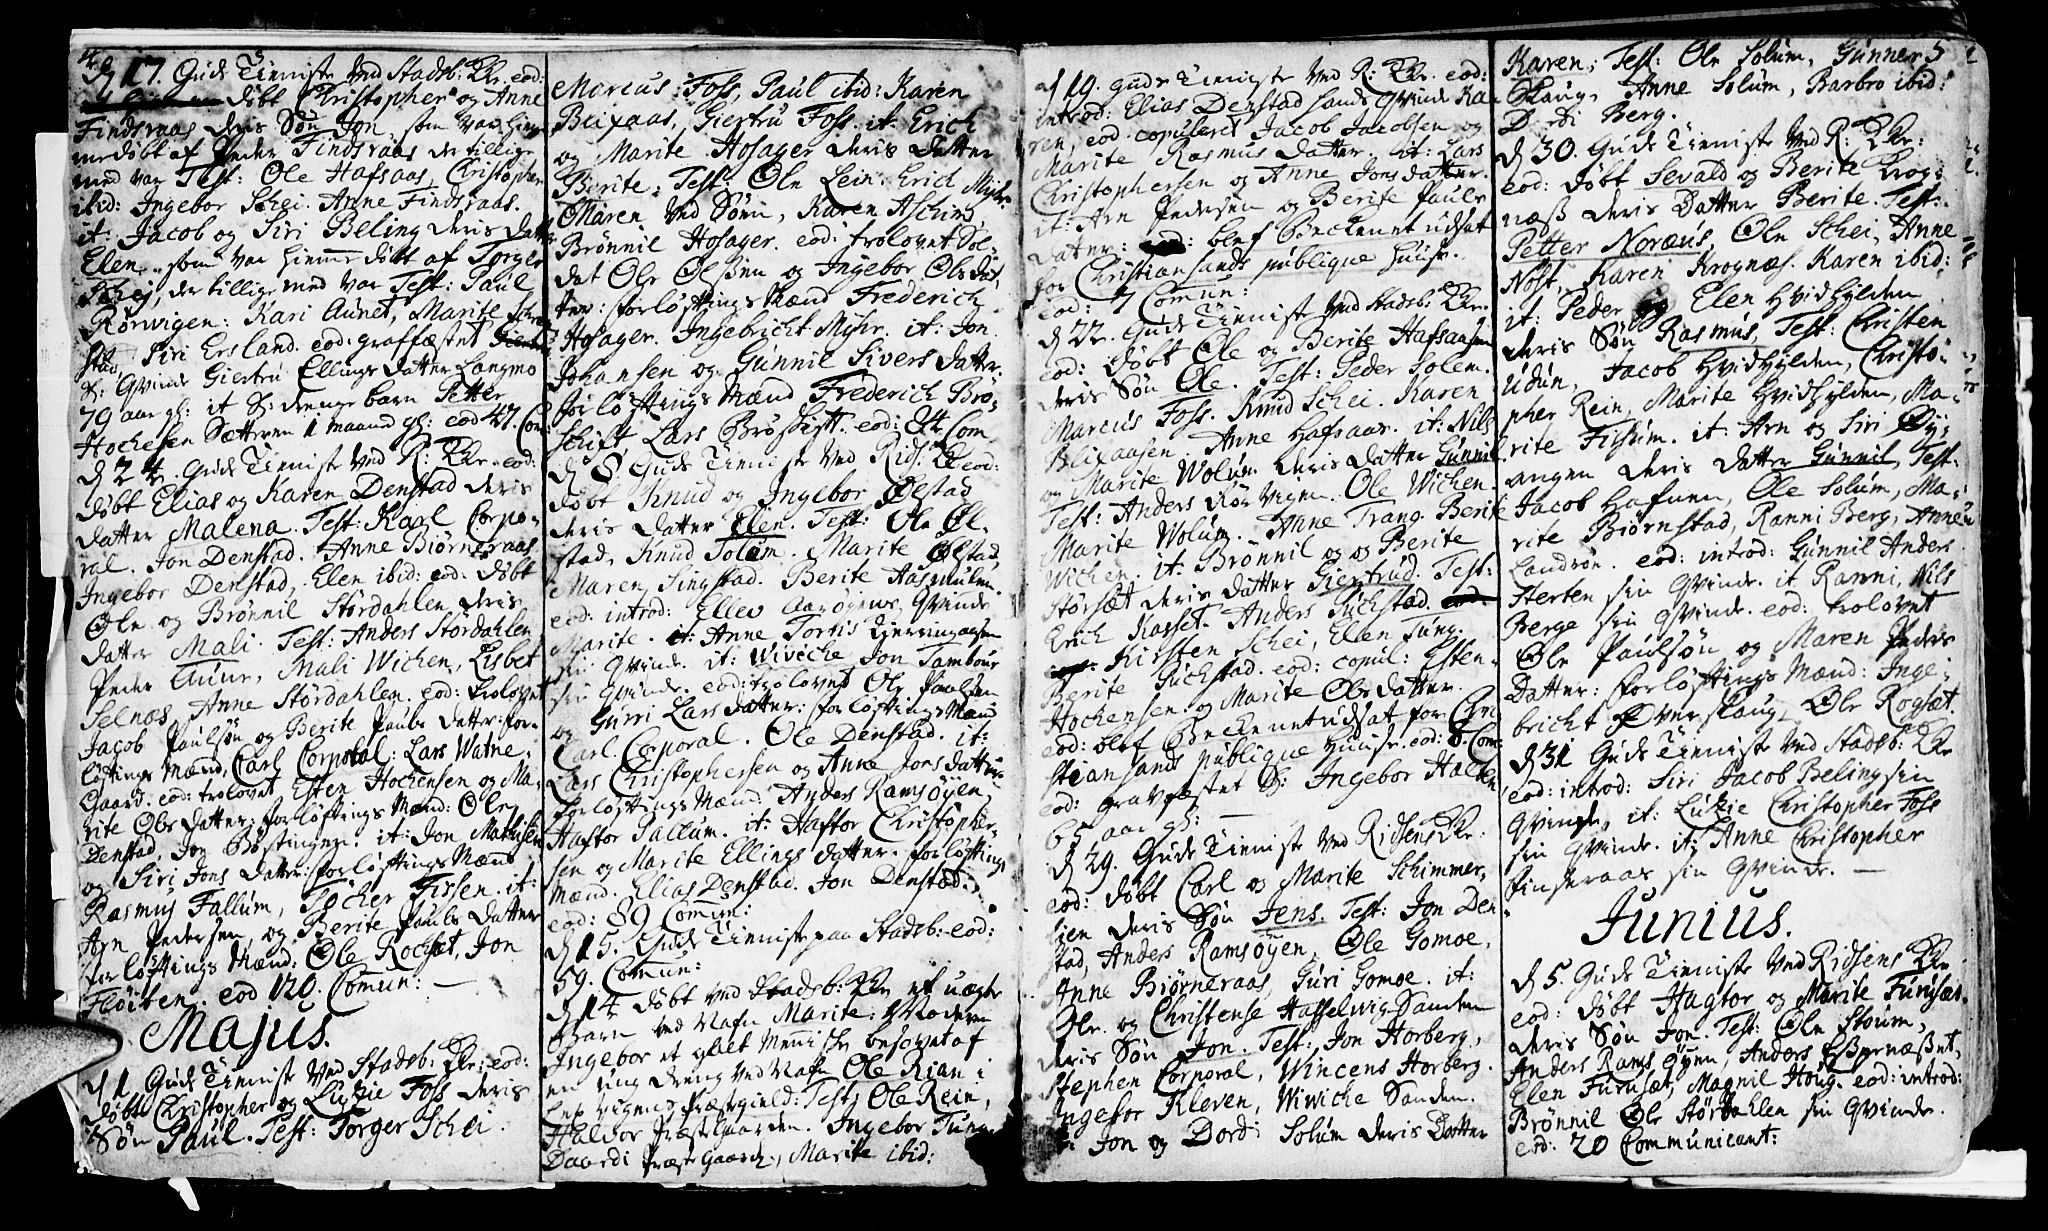 4
d 17. Guds Tieniste Ved Stadsb: Kr. eod:
døbt Christopher og Anne
Findsraas deris Søn Jon, som var hieme
medøbt af Peder Findsraas der tillige
med var Test: Ole Hafsaas, Christopher
ibid: Ingebor Schei. Anne Findsraas.
it. Jacob og Siri Beling deris datt
Elen, som var hieme døbt af Torger
Schej, der tillige med var Test: Paul
Rørwigen: Kari Aunet, Marite
stad, Siri Ersland. eod: graffæstet
S: Qvinde Giertru Ellings datter Langmo
79 aar gl: it S: drenge barn Petter
Hochesen Sætteren 1 maand gl: eod 47. Com
d 24. Guds Tieniste Ved R: Kr. eod:
døbt Elias og Karen Denstad deris
datter Malena. Test: Karl Corpo-
ral. Jon Denstad. Anne Biørneraas
Ingebor Denstad, Elen ibid: eod: døbt
Ole og Brønnil Størdahlen deris
datter Mali. Test: Anders Størdahlen
Peder Auur, Mali Wichen, Lisbet
Selnæs, Anne Størdahlen. eod: trolovet
Jacob Paulsøn og Berite Pauls datter: for-
løftings Mænd, Carl Corporal: Lars Watne-
Gaard. eod: trolovet Esten Hochensen og Ma-
rite Ols datter: forløftings Mænd: Ole
Denstad, Jon Børstinger. it: Jon Mathisen
og Siri Jons datter: forløftings Mænd
Rasmus Fallum, Tocher Firsen. it:
Arn Pedersen og Berite Pauls datter
forløftings Mænd: Ole Rochsæt, Jon
Fløiten. eod 120. Comun: —
Majus.
d 1 Guds Tieniste Ved Stadsb: Kr: eod:
døbt Christopher og Lutzie Foss deris
Søn Paul. Test: Torger Schei.
Marcus Foss, Paul ibid: Karen
Blixaas, Giertru Foss. it: Erich
og Marite Hosager deris datter
Berite: Test: Ole Lein. Erich Myhr.
Maren Ved Søen, Karen Aschim,
Brønnil Hosager. eod: trolovet Sol-
dat Ole Olssen og Ingebor Ols dat,
ter: forløftings Mænd Frederich
Hosager. Ingebricht Myhr. it: Jon
Johansen og Gunnil Sivers datter.
forløftings Mænd Frederich Brø-
schift Lars Brøschift. eod: 84 Com
d 8 Guds Tieniste Ved Rids. Kr eod:
døbt Knud og Ingebor Ølstad
deris datter Elen. Test: Ole Øl-
stad, Knud Solum. Marite Ølstad,
Maren Singstad. Berite Aasmulen
eod: introd: Ellev Aarøyens Qvinde
Marite. it: Anne Tortis Kierringagen
sin Qvinde. it: Wiveche Jon Tambour
sin Qvinde. eod: trolovet Ole Paulsen
og Gurri Lars datter: forløftings Mænd
Carl Corporal. Ole Denstad. it:
Lars Christophersen og Anne Jons datter
forløftings Mænd Anders Ramsøyen,
Haftor Fallum. it: Haftor Christopher-
sen og Marite Ellings datter. forløftings
Mænd. Elias Denstad. Jon Denstad.
eod: 89 Comun:
d 15. Guds Tieniste paa Stadsb: eod:
59. Comun:
d 14 døbt ved Stadsb: Kr et uægte
Barn ved Nafn Marite: Moderen
Ingebor et galet Menniske besovet af
en ung dreng ved Nafn Ole Rian i
Lexvigens Præstegield: Test: Ole Rein,
Haldor Præstgaarden. Ingebor Tung
Daardi Præste Gaard., Marite ibid:
d 19. Guds Tieniste Ved R: Kr. eod:
introd: Elias Denstad hands Qvinde Ka-
ren, eod. copuleret Jacob Jacobsen og
Marite Rasmus datter. it: Lars
Christophersen og Anne Jons datter.
it: Arn Pedersen og Berite Pauls
datter: blef Beckenet udsat
for Christiansands publique Huuse.
eod: 7 Comun:
d 22. Guds Tieniste Ved Stadsb: Kr.
eod: døbt Ole og Berite Hafsaasen
deris Søn Ole. Test: Peder Solem.
Marcus Foss. Knud Schei. Karen
Blixaasen. Anne Hafsaas. it: Nils
og Marite Wolum deris datter Gunnil
Test: Anders Rørvigen. Ole Wichen.
Marite Wolum. Anne Trang. Berite
Wichen. it: Brønnil og og Berite
Størsæt deris datter Giertrud. Test:
Erich Kasset. Anders Suchstad.
Kirsten Schei, Elen Tung.
Berite Suchstad. eod: copul: Esten
Hochensen og Marite Ols datter.
eod: blef Beckenet udsat for Chri-
stiansands publique Huuse. eod: 8. Com
eod: gravfæstet S: Ingebor Halten
65 aar gl: —
d 29. Guds Tieniste Ved Ridsens Kr.
eod: døbt Carl og Marite Schimmer-
lien deris Søn Jens. Test: Jon Den
stad, Anders Ramsøyen, Ole Gomoe,
Anne Biørneraas, Guri Gomoe. it:
Ole og Christense Hasselwig Sanden
deris Søn Jon. Test: Jon Horberg,
Stephen Corporal, Wincens Horberg.
Ingebor Kleven, Wiwiche Sanden.
it: Jon og Dordi Solum deris Datter
5
Karen; Test: Ole Solum, Gunner
Skaug, Anne Solum, Barbro ibid:
Dordi Berg.
d 30. Guds Tieniste Ved R: Kr:
eod: døbt Sevald og Berite Krog-
næss deris datter Berite. Test:
Petter Noræus, Ole Schei, Anne
Nost, Karen Krognæs. Karen ibid:
it: Peder og Elen Hvidhylden
deris Søn Rasmus, Test: Christen
Udun, Jacob Hvidhylden, Christo-
pher Rein, Marite Hvidhylden, Ma-
rite Fissum. it: Arn og Siri Øy-
angen deris datter Gunnil, Test:
Jacob Hafnen, Ole Solum, Ma-
rite Biørnstad, Ranni Berg, Anne
Landrøn. eod: introd: Gunnil Anders
Sterten sin Qvinde. it Ranni, Nils
Berge sin Qvinde. eod: trolovet
Ole Paulsøn og Maren Peders
Datter: forløftings Mænd: Inge-
bricht Overskaug, Ole Rogsæt.
d 31 Guds Tieniste Ved Stadsb: Kr
eod: introd: Siri Jacob Beling sin
Qvinde, it: Lutzie Christopher Foss
sin Qvinde. it: Anne Christopher
Finsraas sin Qvinde. —
Junius.
d 5. Guds Tieniste Ved Ridsens Kr
eod: døbt Hagtor og Marite Furusæt
deris Søn Jon. Test: Ole Stoum,
Anders Ramsøyen, Anders Espnæsset,
Elen Furusæt, Magnil Houg. eod: introd:
Brønnil Ole Størdahlen sin Qvinde.
eod: 20 Communicant: